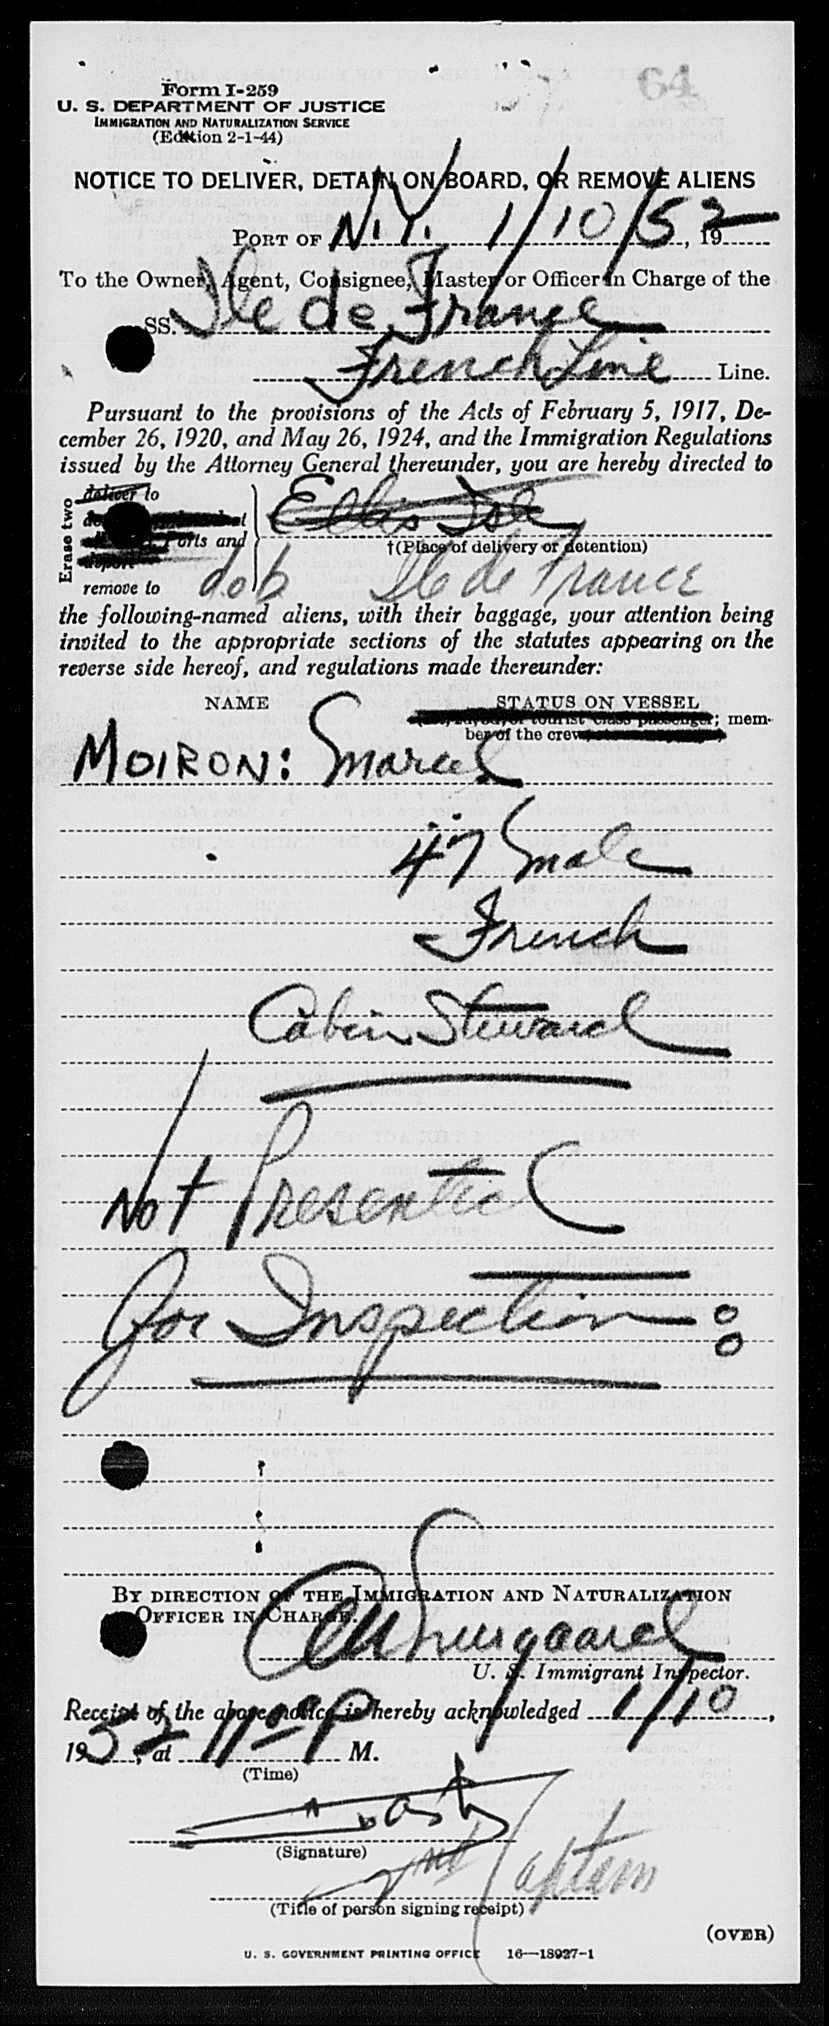 64
Form I-259
U. S. DEPARTMENT OF JUSTICE
IMMIGRATION AND NATURALIZATION SERVICE
(Edition 2-1-44)
NOTICE TO DELIVER, DETAIN ON BOARD, OR REMOVE ALIENS
PORT OF N.Y. 1/10/52, 19
To the Owner, Agent, Consignee, Master or Officer in Charge of the
SS. Ile de France
French Line Line.
Pursuant to the provisions of the Acts of February 5, 1917, De-
cember 26, 1920, and May 26, 1924, and the Immigration Regulations
issued by the Attorney General thereunder, you are hereby directed to
Erase two
deliver to
Ellis Isl
Ports and
†(Place of delivery or detention)
deport
remove to dob Ile de France
the following-named aliens, with their baggage, your attention being
invited to the appropriate sections of the statutes appearing on the
reverse side hereof, and regulations made thereunder:
NAME STATUS ON VESSEL
or tourist class passenger; mem-
ber of the crew
MOIRON: Marcel
47 Male
French
Cabin Steward
Not Presented
for Inspection:
BY DIRECTION OF THE IMMIGRATION AND NATURALIZATION
OFFICER IN CHARGE.
U. S. Immigrant Inspector.
Receipt of the above notice is hereby acknowledged 1/10,
1952, at 11 00 P M.
(Time)
(Signature)
2nd Captain
(Title of person signing receipt)
(OVER)
U. S. GOVERNMENT PRINTING OFFICE 16—18927-1